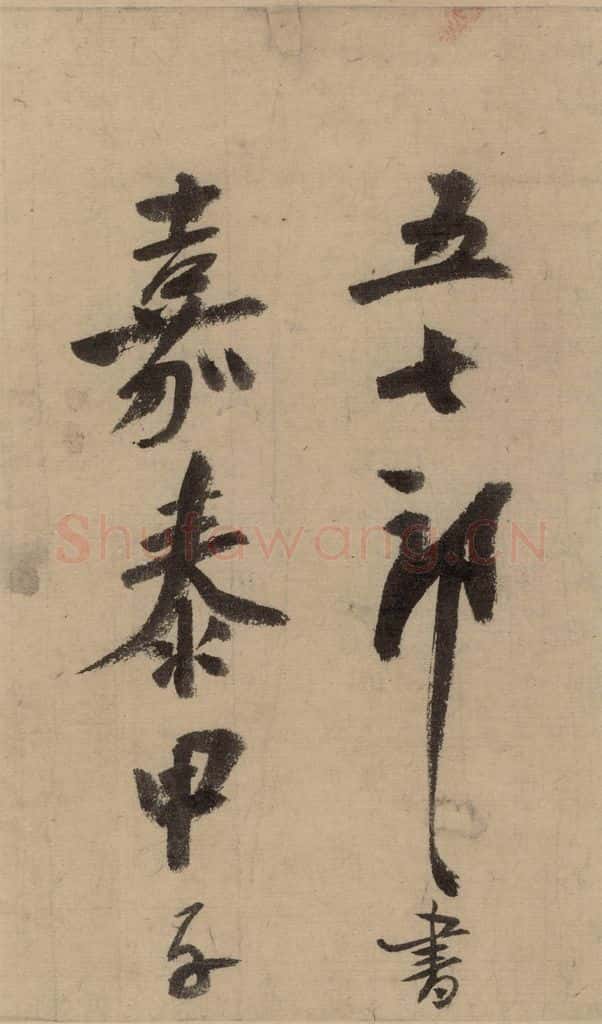 五七郎書
嘉泰甲子
Shufawang.CN